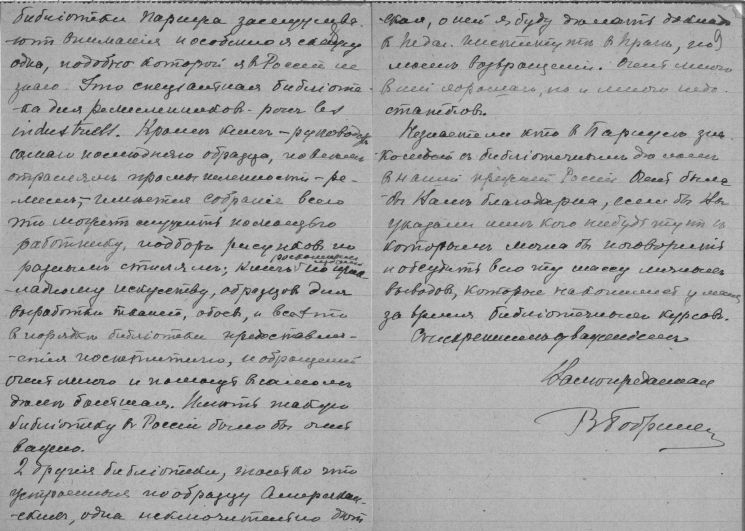 библіотеки Парижа заслужива-
ютъ вниманія и особенно я скажу
одна, подобно которой я въ Россіи не
знаю. Это спеціальная библіоте-
ка для ремесленниковъ - pour les
industriels. Кромѣ книгъ - руководствъ
самаго послѣдняго образца, по всѣмъ
отраслямъ промышленности - ре-
меслъ, имѣется собраніе всего
что можетъ служить помощью
работнику, подборъ рисунковъ по
разнымъ стилямъ, книгъ по прик-
ладному искусству, образцовъ для
выработки тканей, обоевъ, и все это
въ порядкѣ библіотеки предоставля-
ется посѣтителю, и обращеній
очень много и помощь въ самомъ
дѣлѣ большая. Имѣть такую
библіотеку въ Россіи было бы очень
важно.
2 другія библіотеки, это что
устроенныя по образцу Американ-
скихъ, одна исключительно дѣт
ская, о ней я буду дѣлать докладъ
въ Педаг. институтѣ въ Прагѣ, по
моемъ возвращеніи. Очень много
въ ней хорошаго, но и много недо-
статковъ.
Не знаете ли кто въ Парижѣ зна-
комый съ библіотечнымъ дѣломъ
въ нашей прежней Россіи. Очень была
бы Вамъ благодарна, если бы Вы
указали мнѣ кого нибудь тутъ съ
которымъ можно бы поговорить
и обсудить всю эту массу
выводовъ, которые накопились у меня
за время библіотечныхъ курсовъ.
Съ искреннимъ уваженіемъ
Вамъ преданная